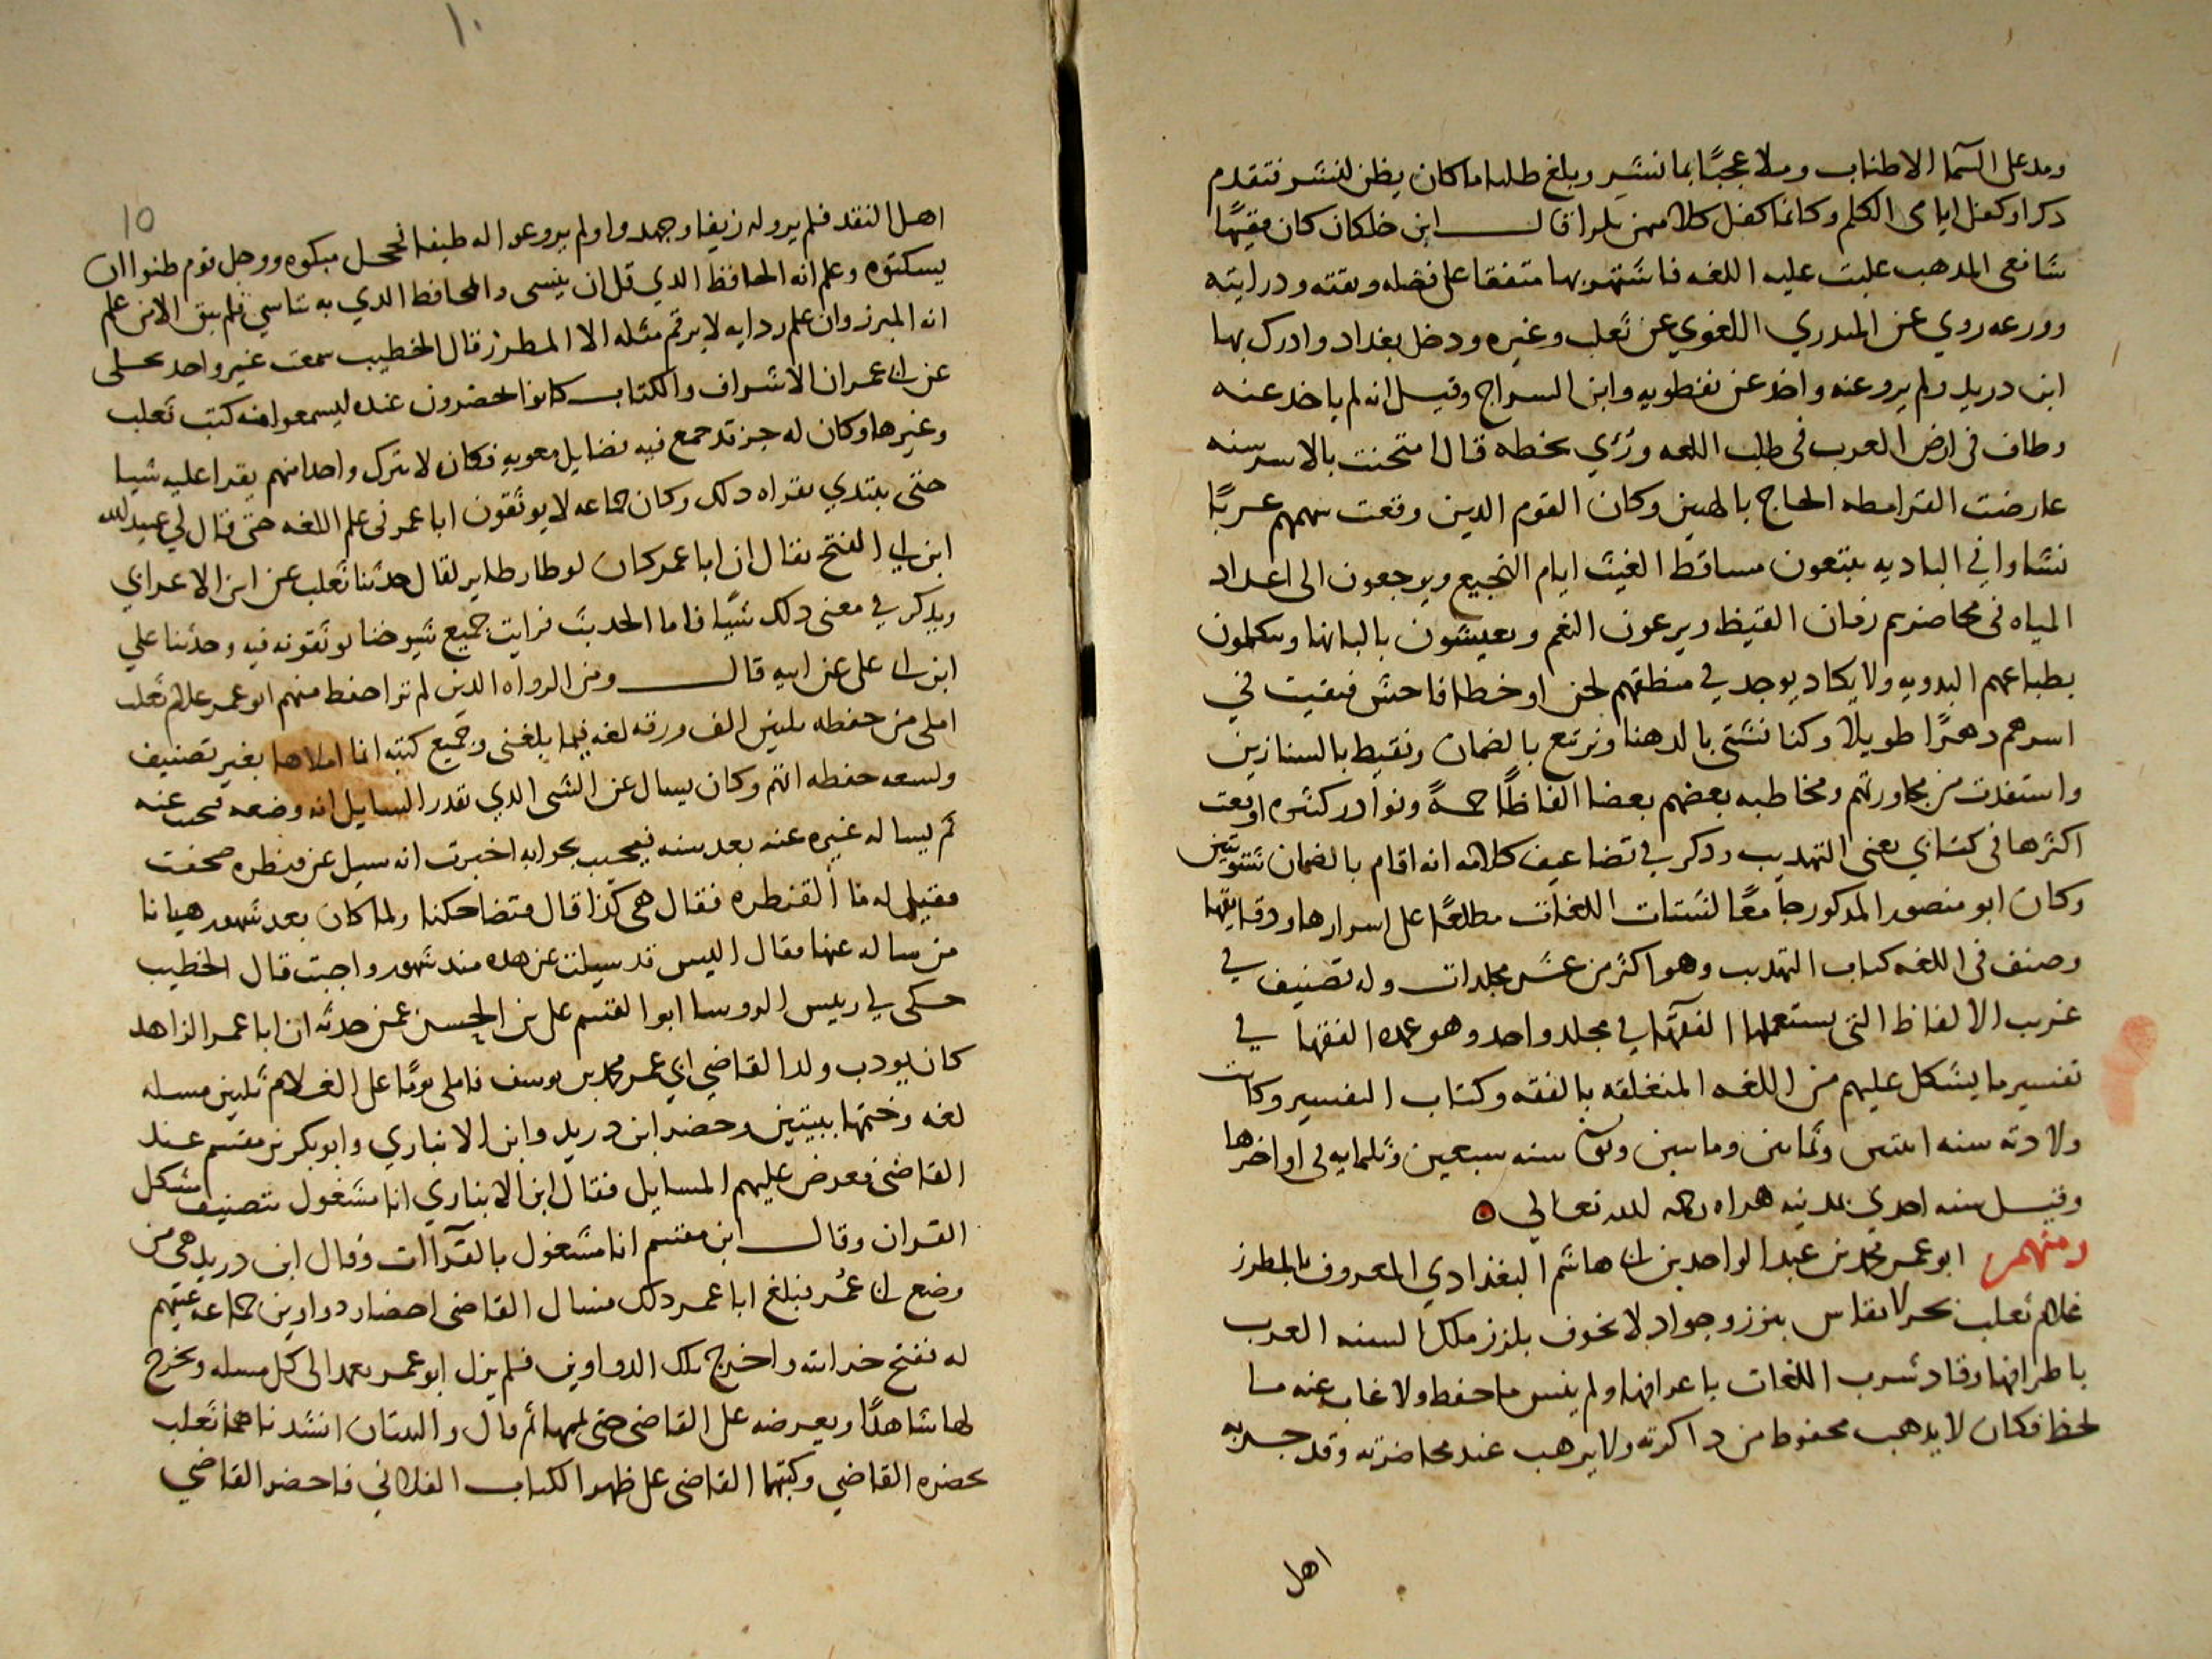 ومد على السما الاطناب وملا عجبًا بما ننشير وبلغ طلبا ما كان يظن لنشر فتقدم
دكرا وكفل ايامى الكلم وكانما كفل كلا مهن بلرا قال ابن خلكان كان فقيهًا
شافعى المدهب غلبت عليه اللغه فاشتهر بها متفقا على فضله وثقته ودرايته
وورعه روي عن المندري اللغوي عن ثعلب وغيره ودخل بغداد وادرك بها
ابن دريد ولم يرو عنه واخد عن نفطويه وابن السراج وقيل انه لم ياخد عنه
وطاف فى ارض العرب فى طلب اللغه ورُئي بخطه قال امتحنت بالاسر سنه
عارضت القرامطه الحاج بالهبير وكان القوم الدين وقعت سهمهم عربًا
نشاوا في الباديه يتتبعون مساقط الغيث ايام النجيع ويرجعون الى اعداد
المياه فى محاضرهم زمان القيظ ويرعون النعم ويعيشون بالبانها ويتكلمون
بطباعهم البدويه ولا يكاد يوجد في منطقهم لحن او خطا فاحش فبقيت في
اسرهم دهرًا طويلًا وكنا نشتى بالدهنا ونرتبع بالضمان ونقيط بالستارين
واستفدت من مجاورتهم ومخاطبه بعضهم بعضا الفاظًا جمةً ونوادر كثيره اوقعت
اكثرها فى كتابي يعنى التهديب ودكر في تضاعيف كلامه انه اقام بالضمان شتويتين
وكان ابو منصور المدكور جامعًا لشتات اللغات مطلعًا على اسرارها ودقايقها
وصنف فى اللغه كتاب التهديب وهو اكثر من عشر مجلدات وله تصنيف في
غريب الالفاظ التى يستعملها الفقهآ في مجلد واحد وهو عمده الفقها في
تفسير ما يشكل عليهم من اللغه المتعلقه بالفقه وكتاب التفسير وكانت
ولادته سنه اثنتين وثمانين ومايتين وتوفى سنه سبعين وثلمايه فى اواخرها
وقيل سنه احدي بمدينه هراه رحمه الله تعالي
ومنهم ابو عمر محمد بن عبد الواحد بن ابى هاشم البغدادي المعروف بالمطرز
غلام ثعلب بحر لا يقاس بنزز وجواد لا يخوف بلزز ملك السنه العرب
باطرافها وقاد شرب اللغات باعرافها ولم ينس ما حفظ ولا غاب عنه ما
لحظ فكان لا يدهب محفوظ من داكرته ولا يرهب عند محاضرته وقد جربه
اهل
١٠
١٥
اهل النقد فلم يروله زيفا وجهدوا ولم يروعوا له طيفا فخجل مبكوه ووجل قوم ظنوا ان
يسكتوه وعلم انه الحافظ الدي قل ان ينسى والمحافظ الدي به تناسي فلم يبق الا من علم
انه المبرز وان علم ردايه لا يرقم مثله الا المطرز قال الخطيب سمعت غير واحد يحكى
عن ابى عمر ان الاشراف والكتاب كانوا يحضرون عنده ليسمعوا منه كتب ثعلب
وغيرها وكان له جز قد جمع فيه فضايل معويه فكان لا يترك واحدا منهم يقرا عليه شيا
حتى يبتدي بقراه دلك وكان جماعه لا يوثقون ابا عمر فى علم اللغه حتى قال لي عبيد الله
ابن ابي الفتح يقال ان ابا عمر كان لو طار طاير لقال حدثنا ثعلب عن ابن الاعرابي
ويدكر في معنى دلك شيًا فاما الحديث فرايت جميع شيوخنا يوثقونه فيه وحدثنا علي
ابن ابى على عن ابيه قال ومن الرواه الدين لم نر احفظ منهم ابو عمر غلام ثعلب
املى من حفظه ثلثين الف ورقه لغه فيما بلغنى وجميع كتبه انما املاها بغير تصنيف
ولسعه حفظه اتهم وكان يسال عن الشى الدي تقدر السايل انه وضعه فيجيب عنه
ثم يساله غيره عنه بعد سنه فيجيب بجوابه اخبرت انه سيل عن قنطره صحفت
فقيل له ما القنطره فقال هى كذا قال فتضاحكنا ولما كان بعد شهور هيانا
من ساله عنها فقال اليس قد سيلت عن هده مند شهور واجبت قال الخطيب
حكى لي رييس الروسا ابو القسم على بن الحسين عمن حدثه ان ابا عمر الزاهد
كان يودب ولد القاضي ابي عمر محمد بن يوسف فاملى يومًا على الغلام ثلثين مسله
لغه وختمها ببيتين وحضر ابن دريد وابن الانباري وابو بكر بن مقسم عند
القاضى فعرض عليهم المسايل فقال ابن الانباري انا مشغول بتصنيف مشكل
القران وقال ابن مقسم انا مشغول بالقرآات وقال ابن دريد هى من
وضع ابى عُمر فبلغ ابا عمر دلك فسال القاضى احضار دواوين جماعه عينهم
له ففتح خزانته واخرج تلك الدواوين فلم يزل ابو عمر يعمد الى كل مسله ويخرج
لها شاهدًا ويعرضه على القاضى حتى تممها ثم قال والبيتان انشدناهما ثعلب
بحضره القاضي وكتبهما القاضى على ظهر الكتاب الفلانى فاحضر القاضي